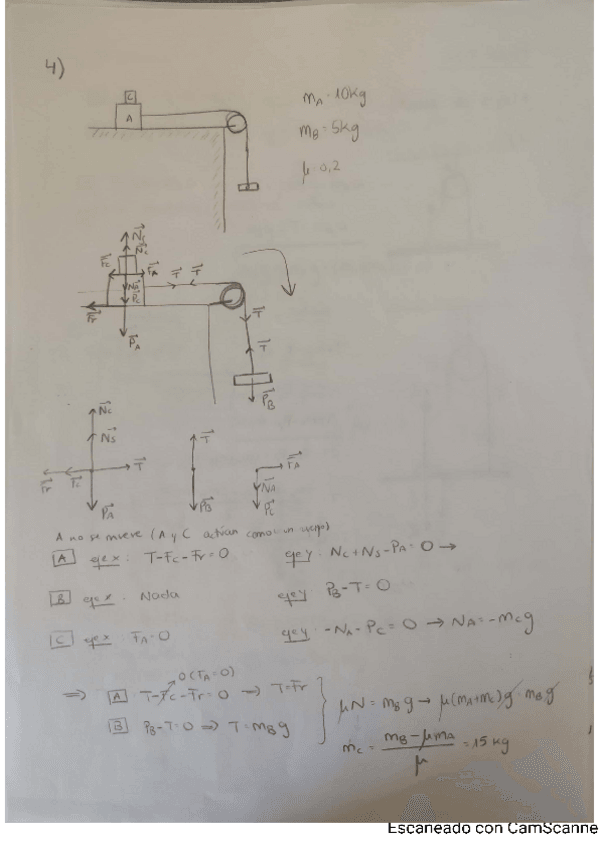 4)
C
A
m_A = 10kg
m_B = 5kg
μ = 0,2
N⃗c
N⃗c
F⃗c F⃗A
N⃗s
T⃗ T⃗
F⃗r P⃗c
P⃗A
T⃗
T⃗
P⃗B
N⃗c
N⃗s T⃗
F⃗r F⃗c T⃗ F⃗A
N⃗A
P⃗A P⃗B P⃗c
A no se mueve (A y C actúan como un cuerpo)
A eje x: T-Fc-Fr=0 eje y: Nc+Ns-PA=0 →
B eje x: Nada eje y PB-T=0
C eje x FA=0 eje y: -NA-Pc=0 → NA=-mcg
0 (FA=0)
⇒ A T-Fc-Fr=0 → T=Fr
B PB-T=0 ⇒ T=mBg
μN = mBg → μ(mA+mc)g = mBg
mc = (mB-μmA)/μ = 15 kg
Escaneado con CamScanne